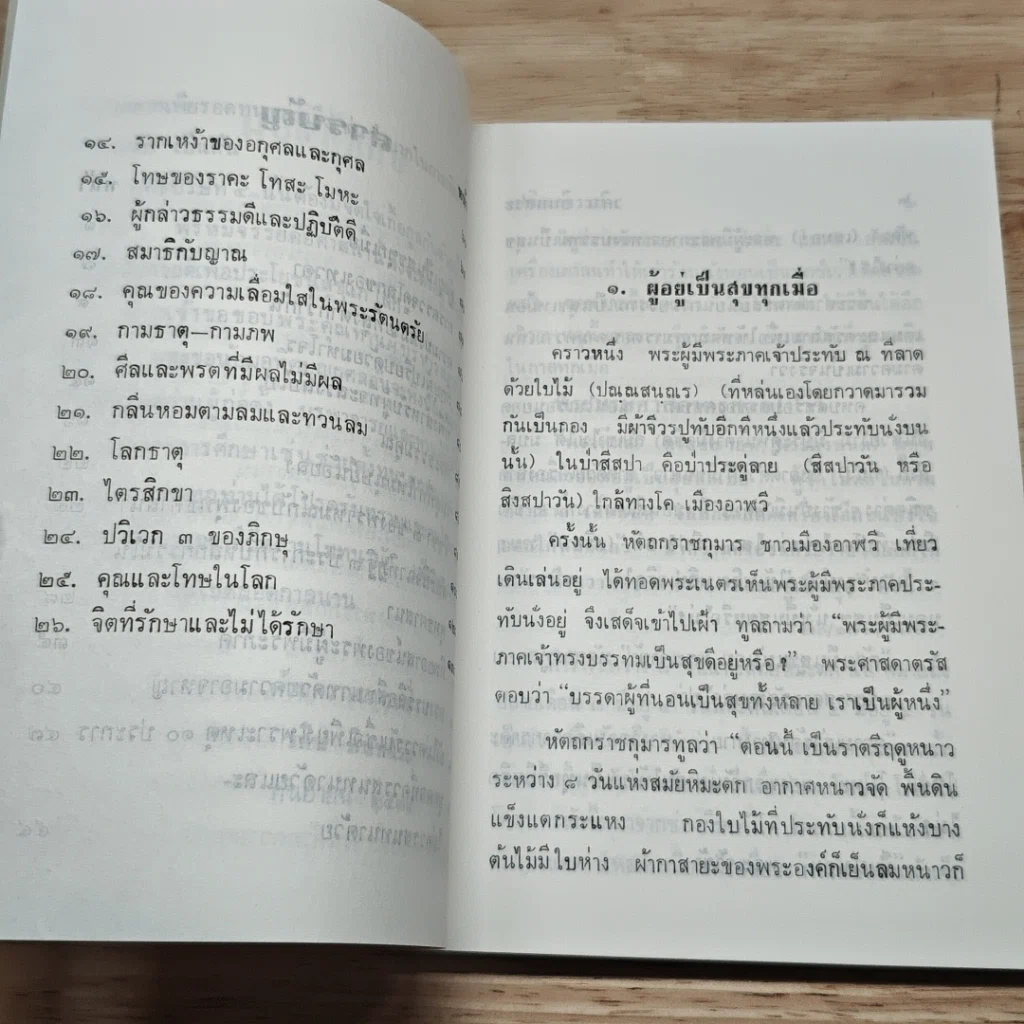 ๑๔. รากเหง้าของอกุศลและกุศล
๑๕. โทษของราคะ โทสะ โมหะ
๑๖. ผู้กล่าวธรรมดีและปฏิบัติดี
๑๗. สมาธิกับญาณ
๑๘. คุณของความเลื่อมใสในพระรัตนตรัย
๑๙. กามธาตุ—กามภพ
๒๐. ศีลและพรตที่มีผลไม่มีผล
๒๑. กลิ่นหอมตามลมและทวนลม
๒๒. โลกธาตุ
๒๓. ไตรสิกขา
๒๔. ปวิเวก ๓ ของภิกษุ
๒๕. คุณและโทษในโลก
๒๖. จิตที่รักษาและไม่ได้รักษา
๑. ผู้อยู่เป็นสุขทุกเมื่อ
คราวหนึ่ง พระผู้มีพระภาคเจ้าประทับ ณ ที่ลาด
ด้วยใบไม้ (ปณฺณสนฺถเร) (ที่หล่นเองโดยกวาดมารวม
กันเป็นกอง มีผ้าจีวรปูทับอีกทีหนึ่งแล้วประทับนั่งบน
นั้น) ในป่าสีสปา คือป่าประดู่ลาย (สีสปาวัน หรือ
สิงสปาวัน) ใกล้ทางโค เมืองอาฬวี
ครั้งนั้น หัตถกราชกุมาร ชาวเมืองอาฬวี เที่ยว
เดินเล่นอยู่ ได้ทอดพระเนตรเห็นพระผู้มีพระภาคประ-
ทับนั่งอยู่ จึงเสด็จเข้าไปเฝ้า ทูลถามว่า “พระผู้มีพระ-
ภาคเจ้าทรงบรรทมเป็นสุขดีอยู่หรือ?” พระศาสดาตรัส
ตอบว่า “บรรดาผู้ที่นอนเป็นสุขทั้งหลาย เราเป็นผู้หนึ่ง”
หัตถกราชกุมารทูลว่า “ตอนนี้ เป็นราตรีฤดูหนาว
ระหว่าง ๘ วันแห่งสมัยหิมะตก อากาศหนาวจัด พื้นดิน
แข็งแตกระแหง กองใบไม้ที่ประทับนั่งก็แห้งบาง
ต้นไม้มีใบห่าง ผ้ากาสายะของพระองค์ก็เย็นลมหนาวก็